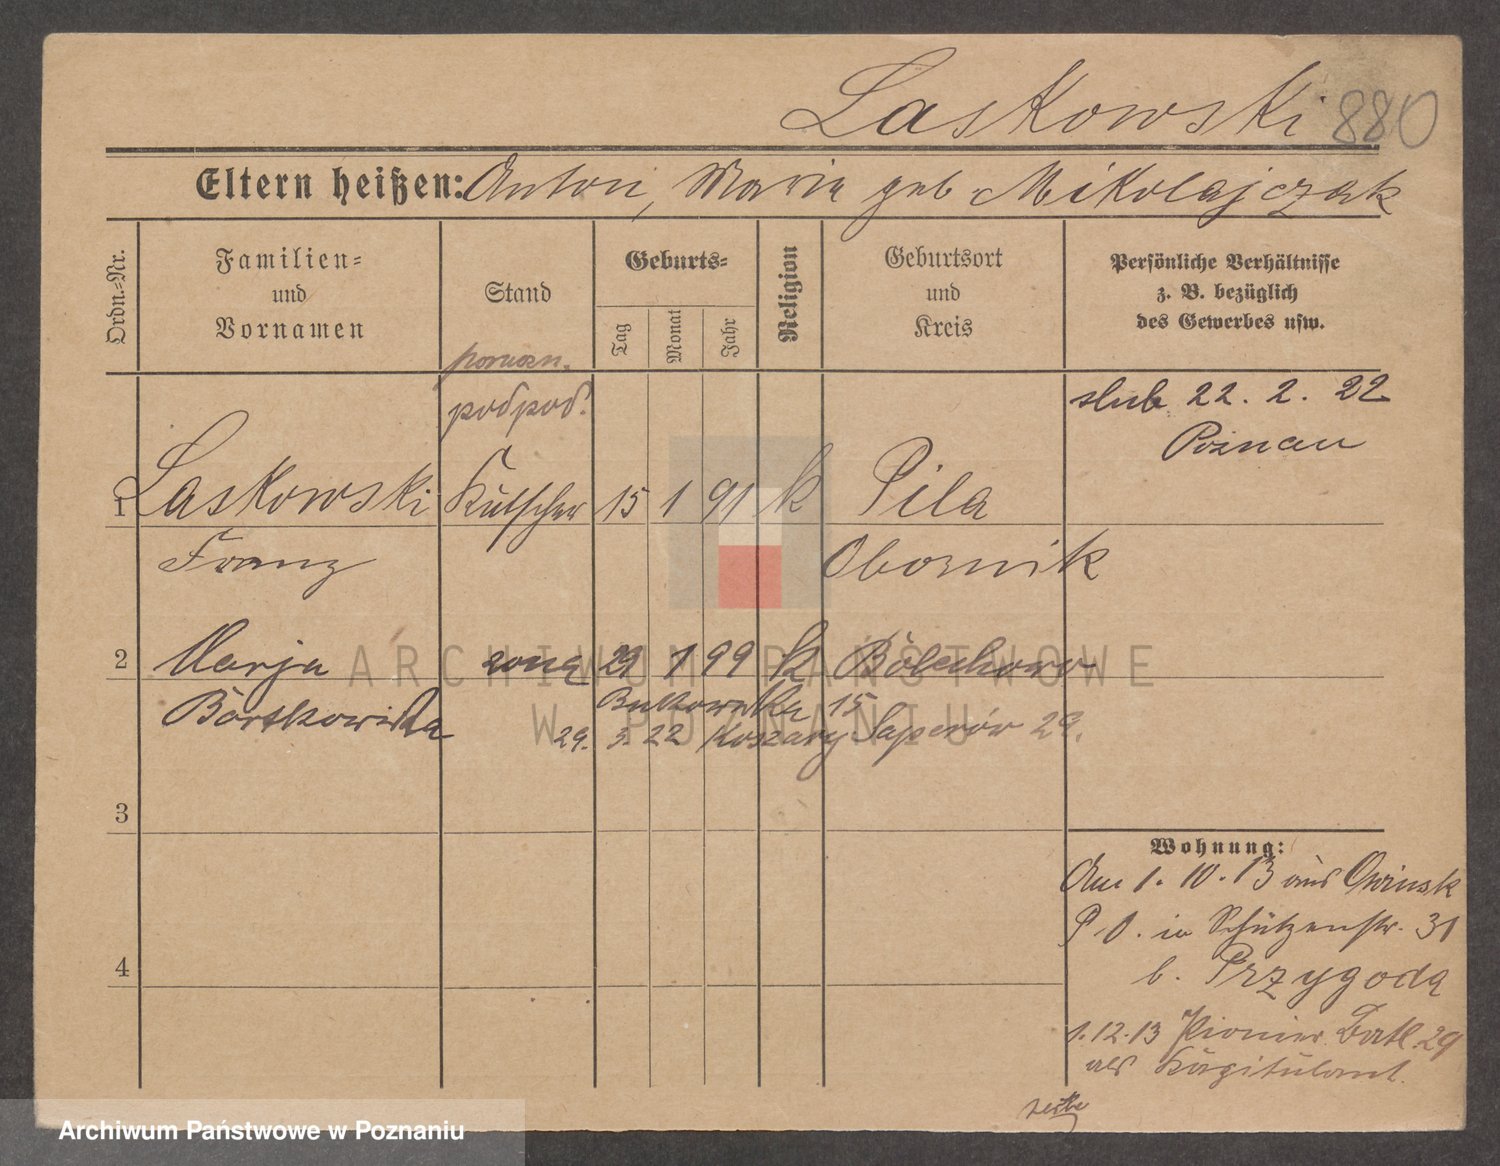 Laskowski 880
Eltern heißen: Anton, Maria geb Mikolajczak
Ordn.-Nr.
Familien-
und
Vornamen
Stand
Geburts-
Tag
Monat
Jahr
Religion
Geburtsort
und
Kreis
Persönliche Verhältnisse
z. B. bezüglich
des Gewerbes usw.
podpod.
slub 22. 2. 22
Poznau
1 Laskowski Kutscher 15 1 91 k Pila
Franz Obornik
2 Marja zona 29 1 99 k Bolechowo
Bartkowiska Bukowska 15
29. 3. 22 Koszary Saperów 29.
3
4
Wohnung:
Am 1. 10. 13 aus Owinsk
P. O. in Schützenstr. 31
b. Przygoda
1.12.13 Pionier Batl. 29
als Kapitulant.
ARCHIWUM PAŃSTWOWE
W POZNANIU
Archiwum Państwowe w Poznaniu